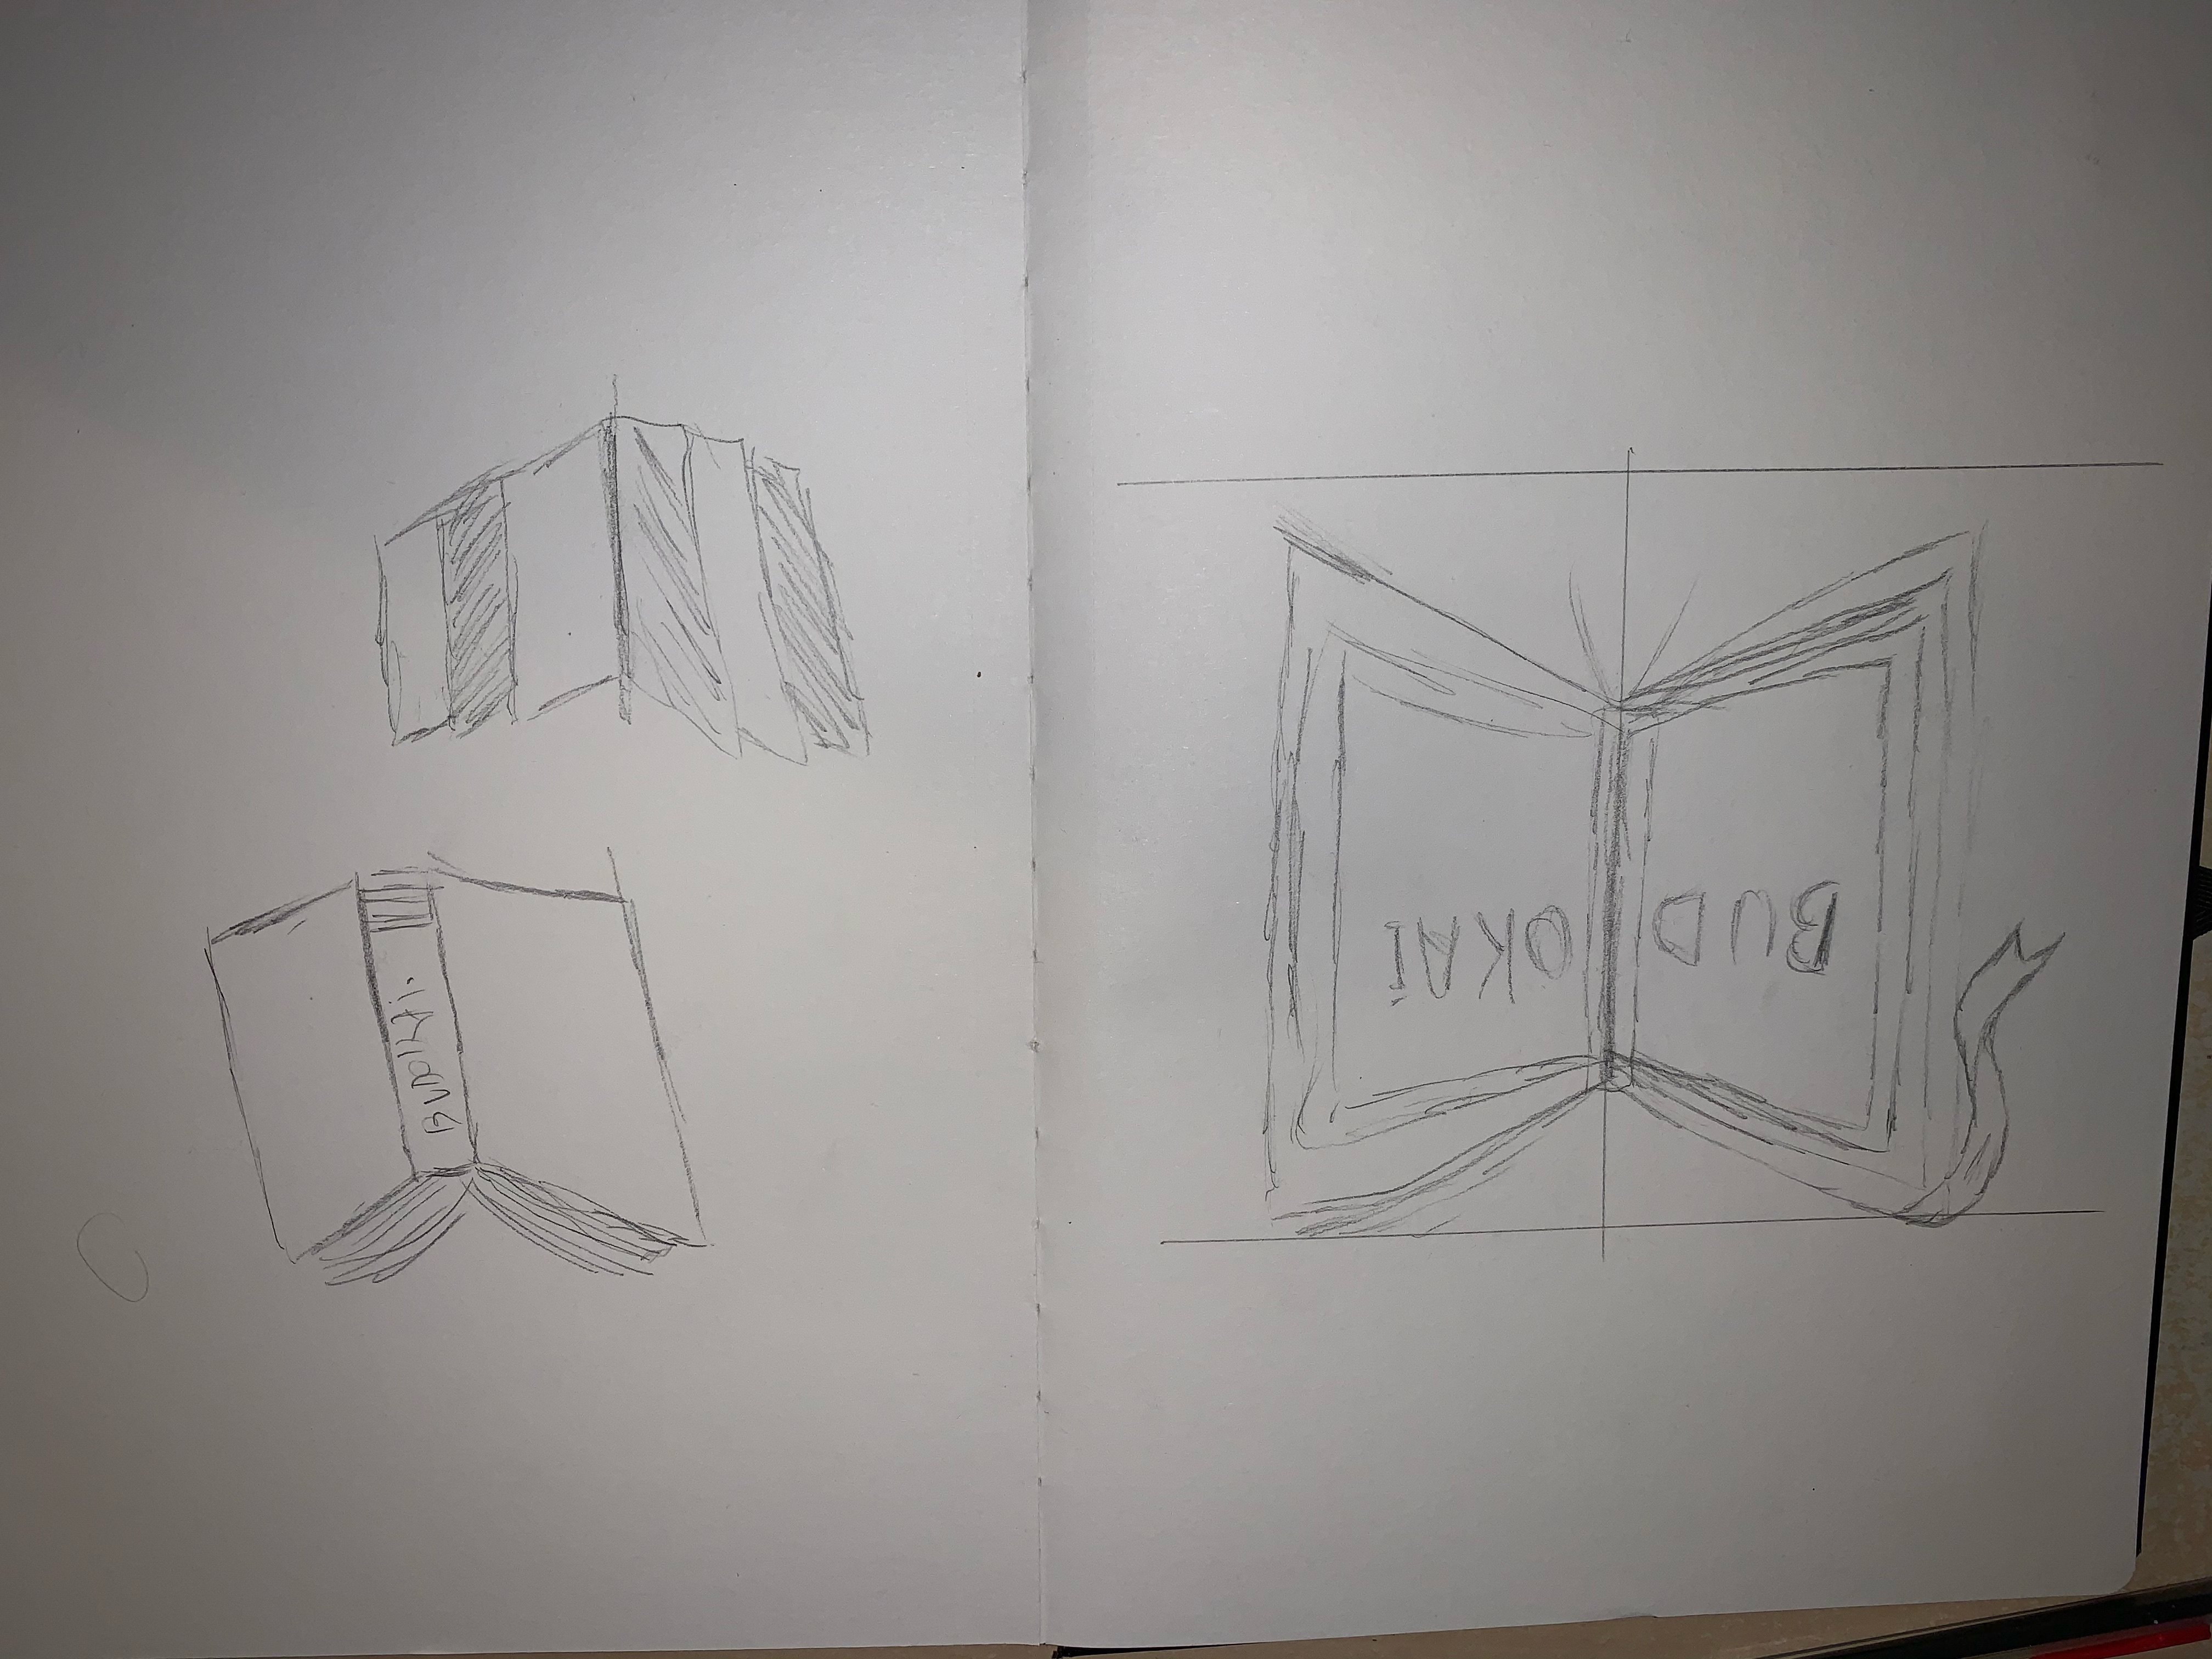 BUDOKAI.
BUD OKAI